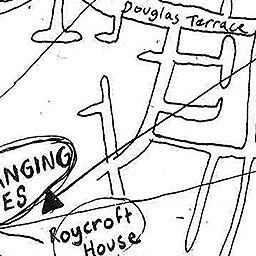 Douglas Terrace
ANGING
ES
Roycroft
House